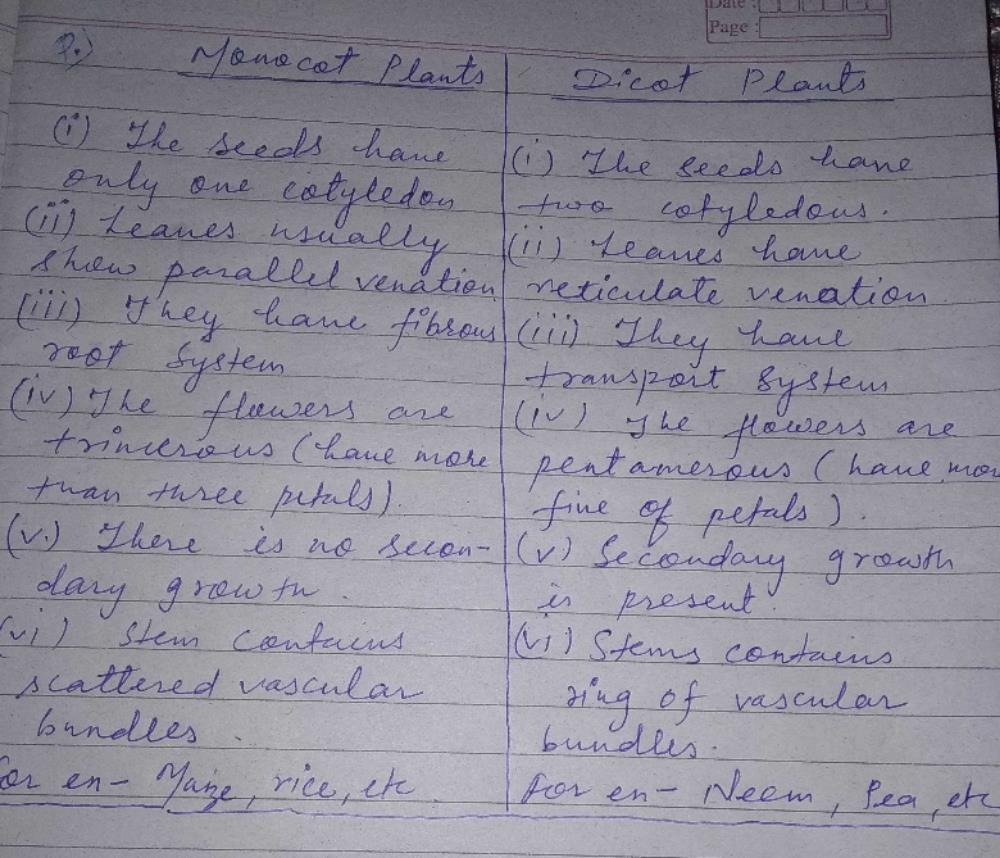 Date :
Page :
P.)
Monocot Plants
(i) The seeds have
only one cotyledon
(ii) Leaves usually
show parallel venation
(iii) They have fibrous
root system
(iv) The flowers are
trimerous (have more
than three petals).
(v.) There is no secon-
dary growth.
(vi) Stem contains
scattered vascular
bundles.
for en- Maize, rice, etc.
Dicot Plants
(i) The seeds have
two cotyledons.
(ii) Leaves have
reticulate venation.
(iii) They have
transport system
(iv) The flowers are
pentamerous (have mor
five of petals).
(v) Secondary growth
is present.
(vi) Stems contains
ring of vascular
bundles.
for en- Neem, Pea, etc